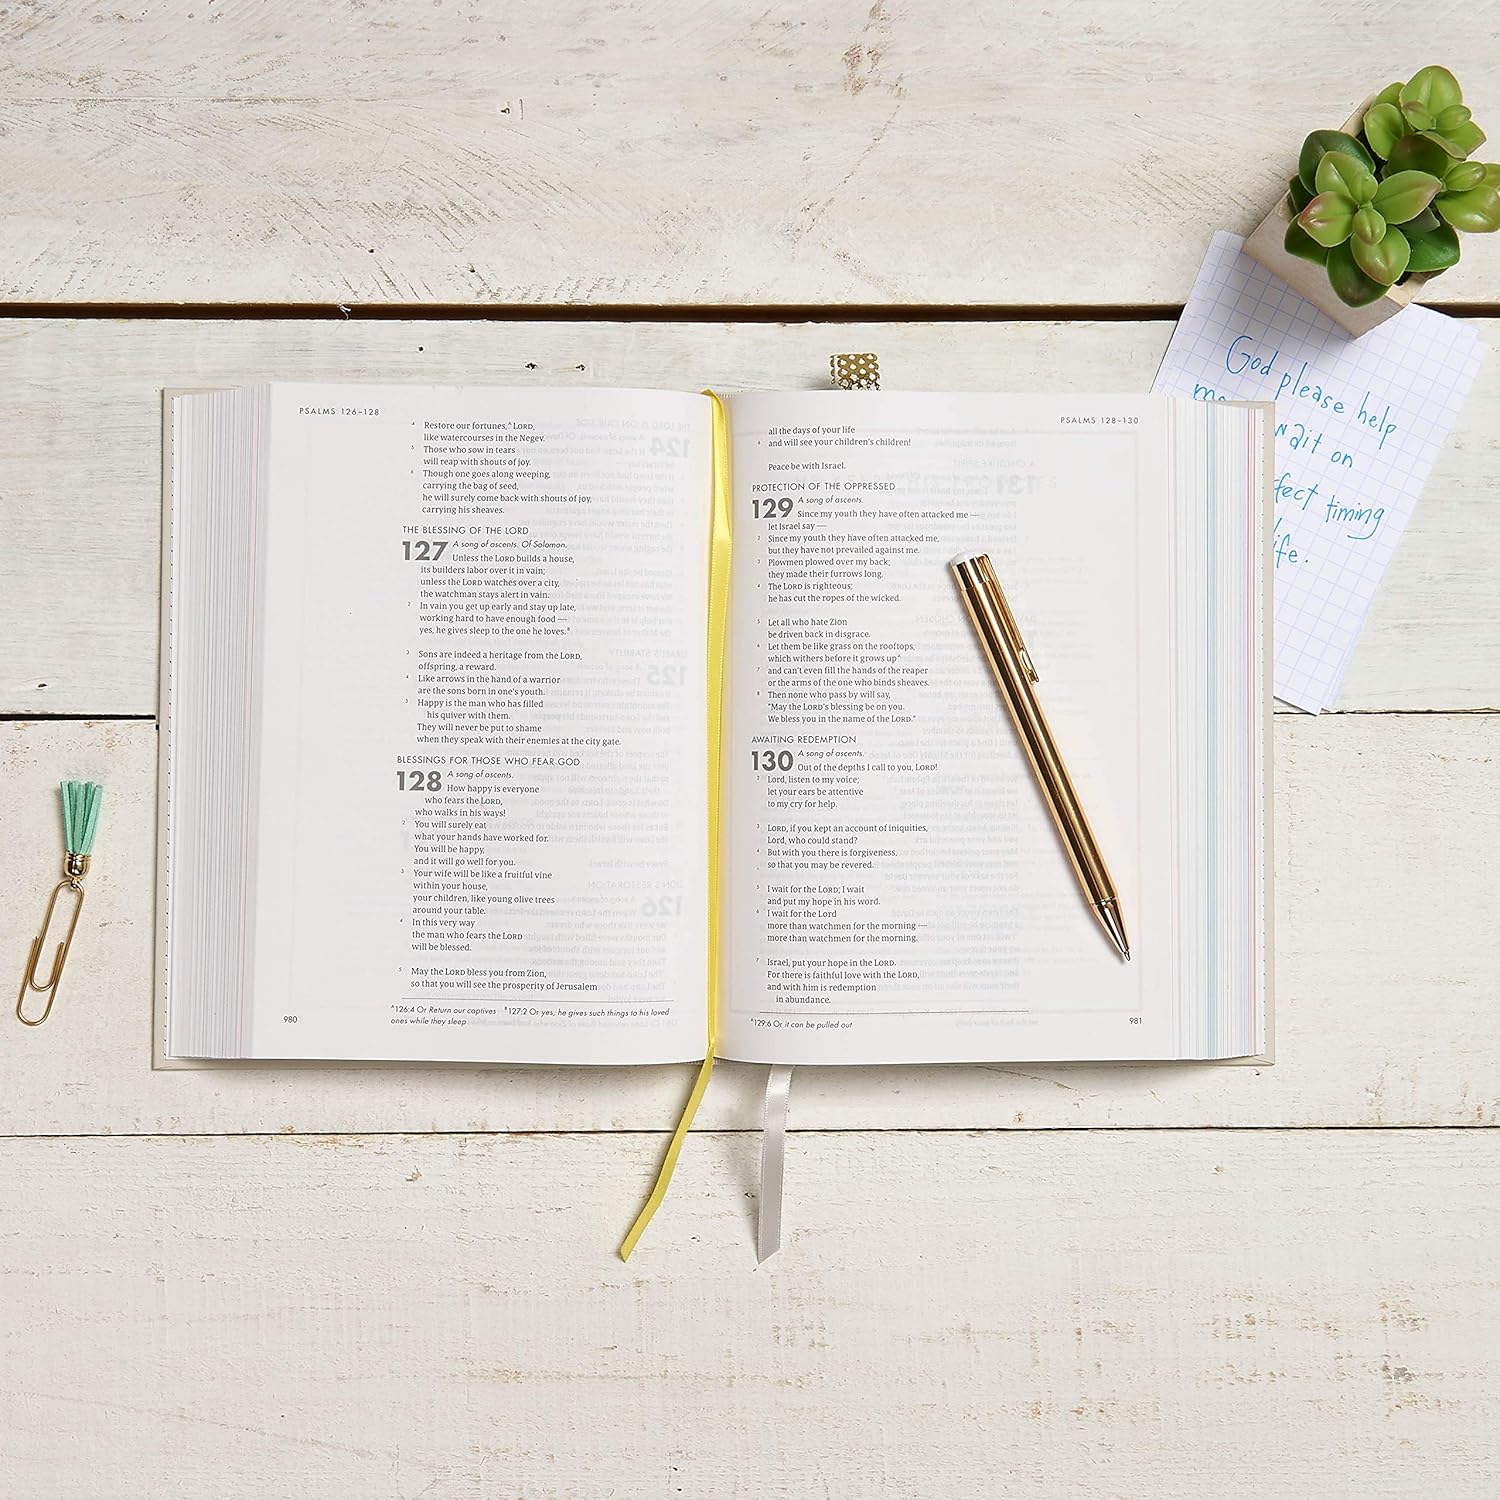 PSALMS 126–128
4 Restore our fortunes,A LORD,
like watercourses in the Negev.
5 Those who sow in tears
will reap with shouts of joy.
6 Though one goes along weeping,
carrying the bag of seed,
he will surely come back with shouts of joy,
carrying his sheaves.
THE BLESSING OF THE LORD
127 A song of ascents. Of Solomon.
Unless the LORD builds a house,
its builders labor over it in vain;
unless the LORD watches over a city,
the watchman stays alert in vain.
2 In vain you get up early and stay up late,
working hard to have enough food —
yes, he gives sleep to the one he loves.B
3 Sons are indeed a heritage from the LORD,
offspring, a reward.
4 Like arrows in the hand of a warrior
are the sons born in one's youth.
5 Happy is the man who has filled
his quiver with them.
They will never be put to shame
when they speak with their enemies at the city gate.
BLESSINGS FOR THOSE WHO FEAR GOD
128 A song of ascents.
How happy is everyone
who fears the LORD,
who walks in his ways!
2 You will surely eat
what your hands have worked for.
You will be happy,
and it will go well for you.
3 Your wife will be like a fruitful vine
within your house,
your children, like young olive trees
around your table.
4 In this very way
the man who fears the LORD
will be blessed.
5 May the LORD bless you from Zion,
so that you will see the prosperity of Jerusalem
A126:4 Or Return our captives B127:2 Or yes, he gives such things to his loved
ones while they sleep
980
PSALMS 128–130
all the days of your life
6 and will see your children's children!
Peace be with Israel.
PROTECTION OF THE OPPRESSED
129 A song of ascents.
Since my youth they have often attacked me —
let Israel say —
2 Since my youth they have often attacked me,
but they have not prevailed against me.
3 Plowmen plowed over my back;
they made their furrows long.
4 The LORD is righteous;
he has cut the ropes of the wicked.
5 Let all who hate Zion
be driven back in disgrace.
6 Let them be like grass on the rooftops,
which withers before it grows upA
7 and can't even fill the hands of the reaper
or the arms of the one who binds sheaves.
8 Then none who pass by will say,
"May the LORD's blessing be on you.
We bless you in the name of the LORD."
AWAITING REDEMPTION
130 A song of ascents.
Out of the depths I call to you, LORD!
2 Lord, listen to my voice;
let your ears be attentive
to my cry for help.
3 LORD, if you kept an account of iniquities,
Lord, who could stand?
4 But with you there is forgiveness,
so that you may be revered.
5 I wait for the LORD; I wait
and put my hope in his word.
6 I wait for the Lord
more than watchmen for the morning —
more than watchmen for the morning.
7 Israel, put your hope in the LORD.
For there is faithful love with the LORD,
and with him is redemption
in abundance.
A129:6 Or it can be pulled out
981
God please help
on
timing